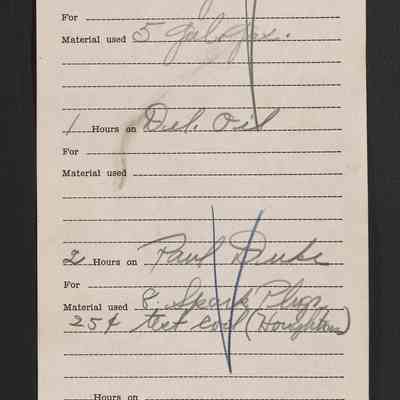 For
Material used 5 gal. gas.
1 Hours on Del. Oil
For
Material used
2 Hours on Paul Duke
For
Material used 8. Spark Plugs
25¢ test coil (Houghton)
Hours on